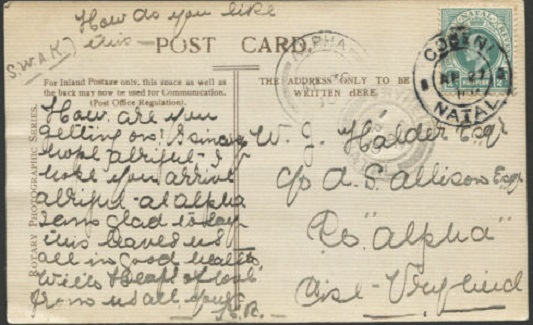 How do you like
this —
(S.W.A.K)
POST CARD.
For Inland Postage only, this space as well as
the back may now be used for Communication.
(Post Office Regulation).
THE ADDRESS ONLY TO BE
WRITTEN HERE.
ROTARY PHOTOGRAPHIC SERIES.
How are you
getting on? I
hope
hope you arrive
at Alpha
I am glad to say
this leaves us
all in good health
With Heaps of love
from us all yours
H.R.
W. J. Halder Esqr
c/o A. S. Allison Esqr
"Alpha"
Vryheid
NATAL